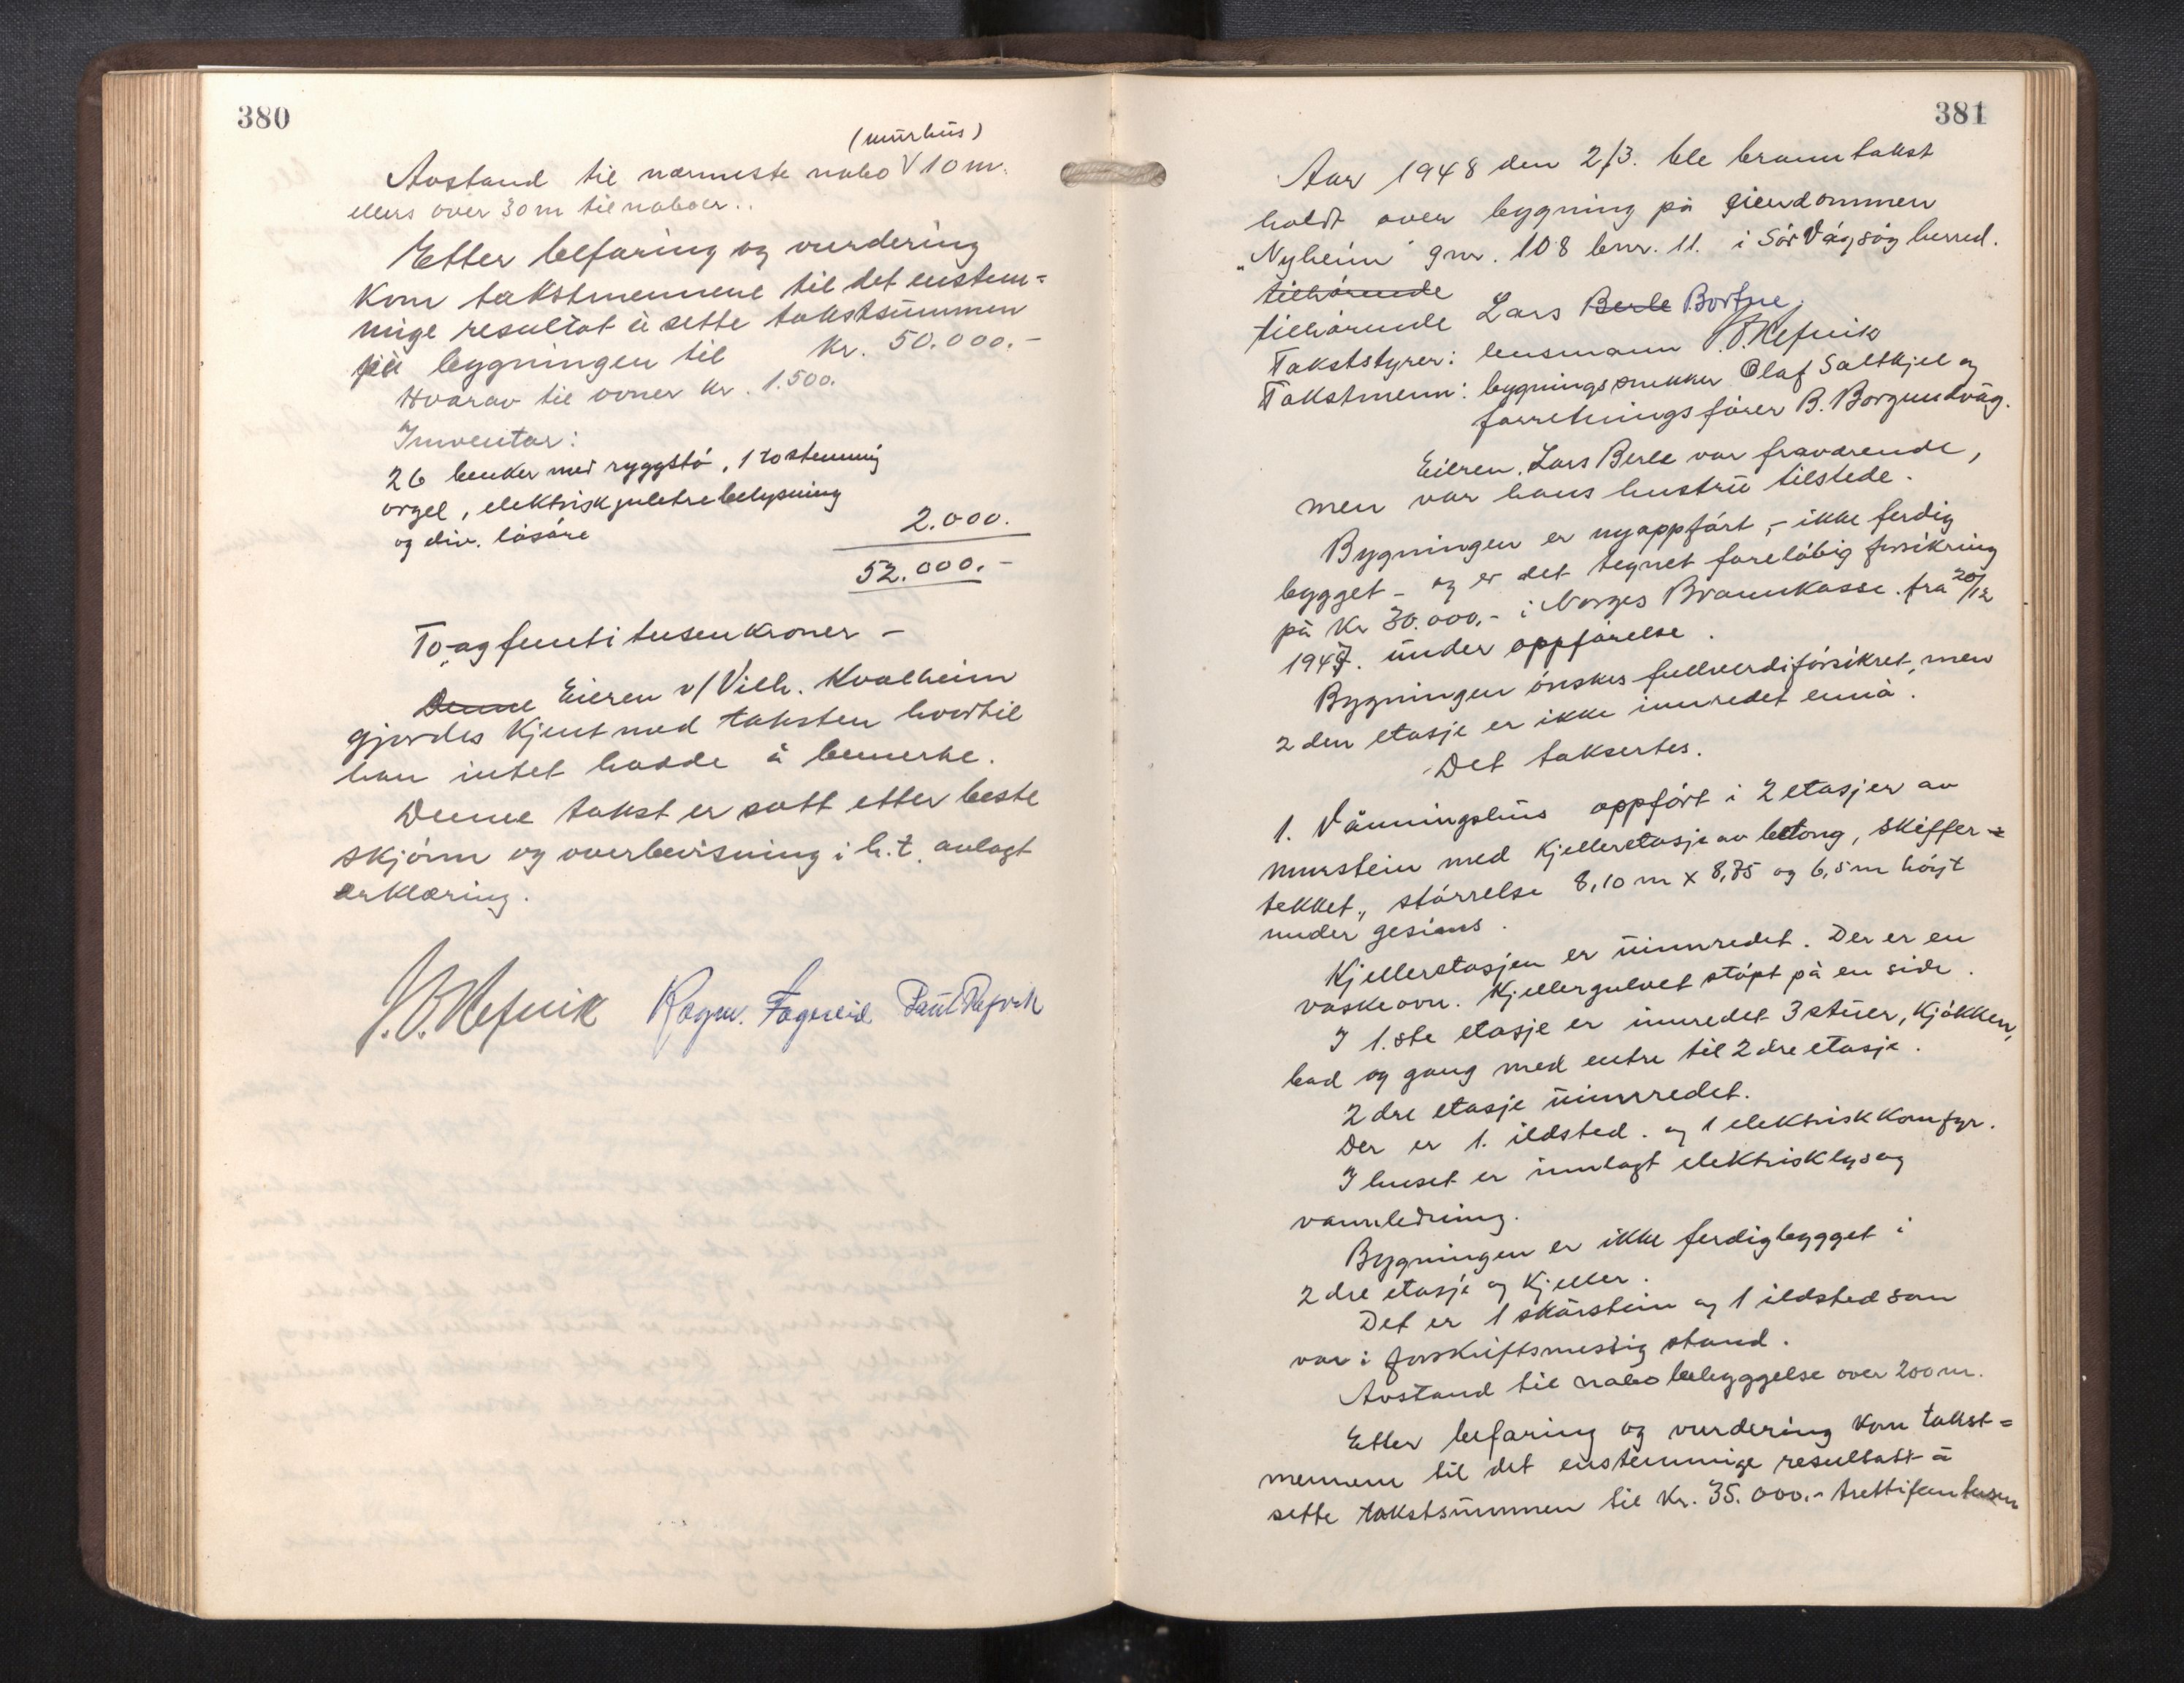 380
(murhus)
Avstand til nærmeste nabo V 10 m.
ellers over 30 m til naboer..
Etter befaring og vurdering
kom takstmennene til det enstem=
mige resultat å sette takstsummen
på bygningen til kr. 50.000.-
Hvorav til ovner kr. 1.500.
Inventar:
26 benker med ryggstö, 1 20 stemmig
orgel, elektrisk juletrebelysning
og div. lösöre 2.000.
52.000.-
To-og femti tusen kroner -
Denne Eieren v/ Vilh. Kvalheim
gjordes kjent med taksten hvortil
han intet hadde å bemerke.
Denne takst er satt etter beste
skjönn og overbevisning i h.t. avlagt
erklæring.
J.O. Refvik Ragn. Fagereid Paul Refvik
381
Aar 1948 den 2/3. ble branntakst
holdt over bygning på eiendommen
"Nyheim" gnr. 108 bnr. 11. i Sör Vågsöy herred.
tilhörende
tilhörende Lars Berle Bortne.
Takststyrer: lensmann J.O. Refvik
Takstmenn: bygningssnekker Olaf Saltkjel og
forretningsförer B. Borgundvåg.
Eieren. Lars Berle var fraværende,
men var hans hustru tilstede.
Bygningen er nyoppfört, - ikke ferdig
bygget - og er det tegnet foreløbig forsikring
på kr 30.000,- i Norges Brannkasse. fra 20/12
1947. under oppförelse.
Bygningen önskes fullverdiforsikret, men
2 den etasje er ikke innredet ennå.
Det taksertes.
1. Våningshus oppfört i 2 etasjer av
murstein med kjelleretasje av betong, skiffer=
tekket., störrelse 8,10 m x 8,85 og 6,5 m höyt
under gesims.
Kjelleretasjen er uinnredet. Der er en
vaskeovn. Kjellergulvet stöpt på en side.
I 1.ste etasje er innredet 3 stuer, kjökken,
bad og gang med entre til 2 dre etasje.
2 dre etasje uinnredet.
Der er 1. ildsted. og 1 elektrisk komfyr.
I huset er innlagt elektrisk lys og
vannledning.
Bygningen er ikke ferdigbygget i
2 dre etasje og kjeller.
Det er 1 skorstein og 1 ildsted som
var i forskriftsmessig stand.
Avstand til nabobebyggelse over 200 m.
Etter befaring og vurdering kom takst=
mennene til det enstemmige resultatt å
sette takstsummen til kr. 35.000.- trettifemtusen